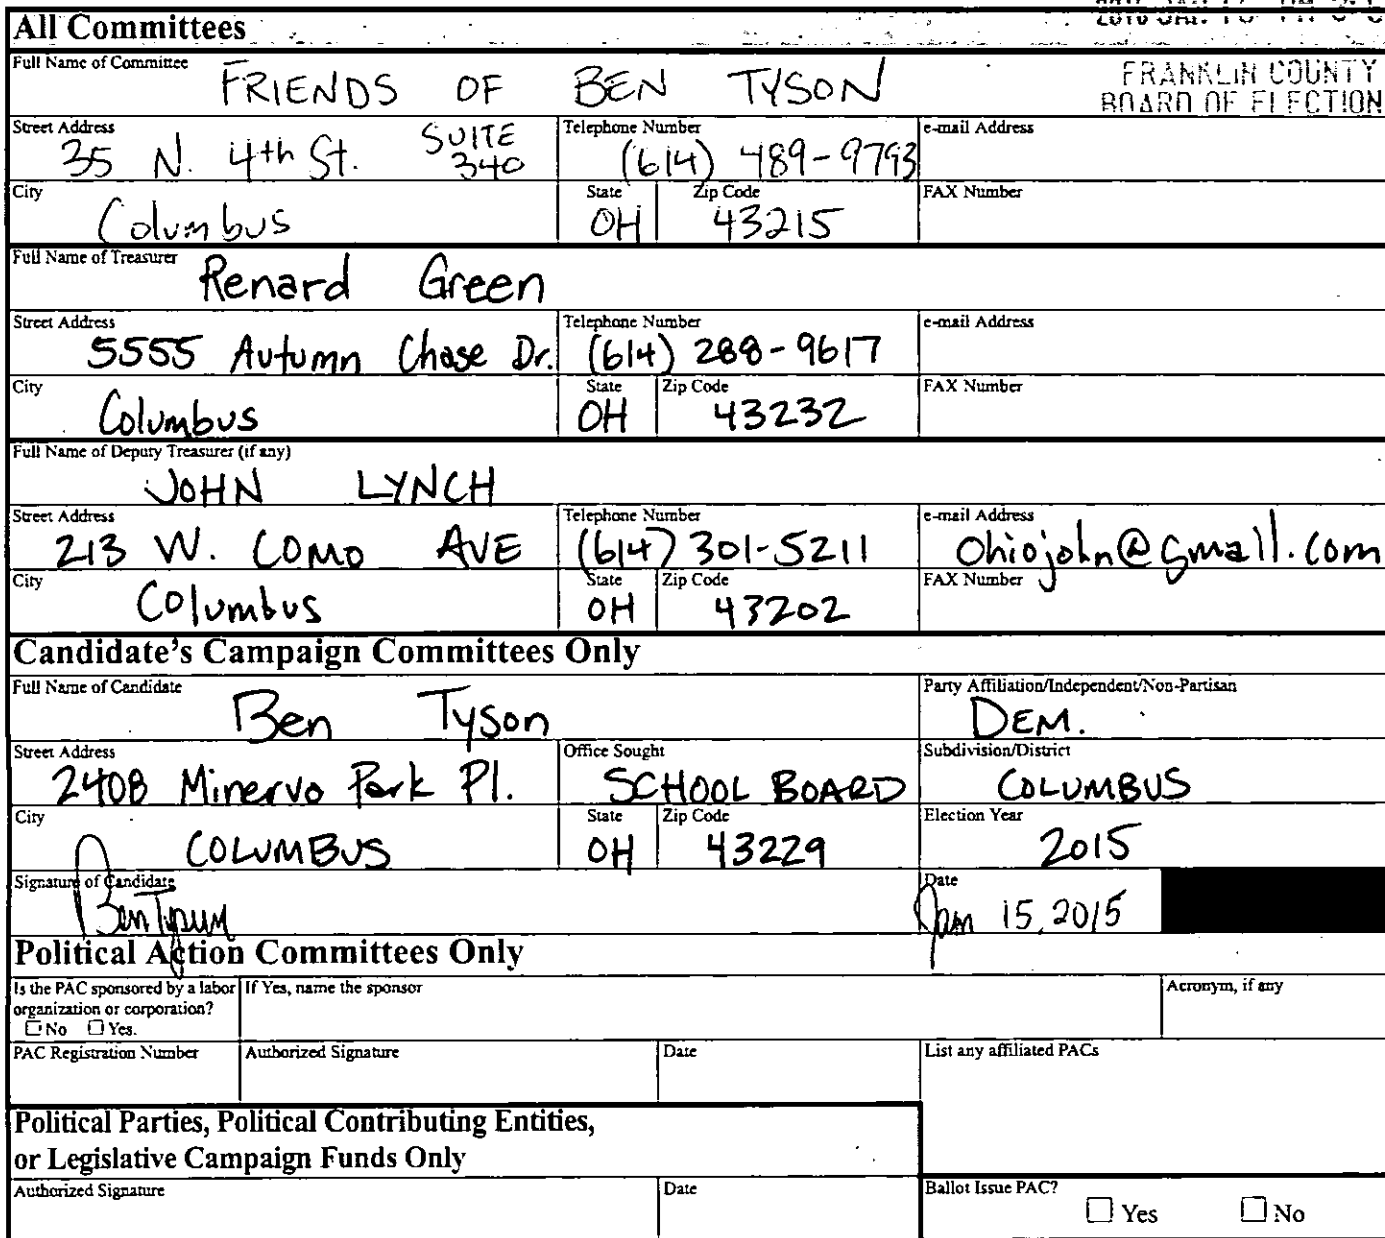 All Committees
FRANKLIN COUNTY
BOARD OF ELECTION
Full Name of Committee
FRIENDS OF BEN TYSON
Street Address
35 N. 4th St. SUITE 340
Telephone Number
(614) 489-9793
e-mail Address
City
Columbus
State
OH
Zip Code
43215
FAX Number
Full Name of Treasurer
Renard Green
Street Address
5555 Autumn Chase Dr.
Telephone Number
(614) 288-9617
e-mail Address
City
Columbus
State
OH
Zip Code
43232
FAX Number
Full Name of Deputy Treasurer (if any)
JOHN LYNCH
Street Address
213 W. COMO AVE
Telephone Number
(614) 301-5211
e-mail Address
Ohiojohn@gmail.com
City
Columbus
State
OH
Zip Code
43202
FAX Number
Candidate's Campaign Committees Only
Full Name of Candidate
Ben Tyson
Party Affiliation/Independent/Non-Partisan
DEM.
Street Address
2408 Minerva Park Pl.
Office Sought
SCHOOL BOARD
Subdivision/District
COLUMBUS
City
COLUMBUS
State
OH
Zip Code
43229
Election Year
2015
Signature of Candidate
Ben Tyson
Date
Jan 15, 2015
Political Action Committees Only
Is the PAC sponsored by a labor
organization or corporation?
No Yes.
If Yes, name the sponsor
Acronym, if any
PAC Registration Number
Authorized Signature
Date
List any affiliated PACs
Political Parties, Political Contributing Entities,
or Legislative Campaign Funds Only
Authorized Signature
Date
Ballot Issue PAC?
Yes No